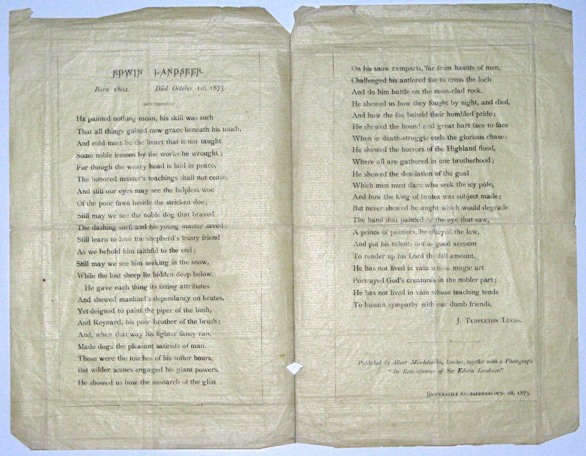 EDWIN LANDSEER.
Born 1802. Died October 1st, 1873.
He painted nothing mean, his skill was such
That all things gained new grace beneath his touch,
And cold must be the heart that is not taught
Some noble lessons by the works he wrought;
For though the weary head is laid in peace,
The honored master's teachings shall not cease,
And still our eyes may see the helpless woe
Of the poor fawn beside the stricken doe;
Still may we see the noble dog that braved
The dashing surf, and his young master saved;
Still learn to love the shepherd's trusty friend
As we behold him faithful to the end;
Still may we see him seeking in the snow,
While the lost sheep lie hidden deep below.
He gave each thing its fitting attributes
And shewed mankind's dependency on brutes,
Yet deigned to paint the piper of the bush,
And Reynard, his poor brother of the brush;
And, when that way his lighter fancy ran,
Made dogs the pleasant satirists of man.
These were the touches of his softer hours,
But wilder scenes engaged his giant powers,
He shewed us how the monarch of the glen
On his snow ramparts, far from haunts of men,
Challenged his antlered foe to cross the loch
And do him battle on the moss-clad rock.
He shewed us how they fought by night, and died,
And how the fox beheld their humbled pride;
He shewed the hound and great hart face to face
When in death-struggle ends the glorious chase;
He shewed the horrors of the Highland flood,
Where all are gathered in one brotherhood;
He shewed the desolation of the goal
Which men must dare who seek the icy pole,
And how the king of brutes was subject made;
But never shewed he aught which would degrade
The hand that painted or the eye that saw,
A prince of painters, he obeyed the law,
And put his talents out to good account
To render up his Lord the full amount.
He has not lived in vain whose magic art
Portrayed God's creatures in the nobler part;
He has not lived in vain whose teaching tends
To human sympathy with our dumb friends.
J. TEMPLETON LUCAS.
Published by Albert London, together with a Photograph
"In Remembrance of Sir Edwin Landseer."
[COPYRIGHT 28, 1873.